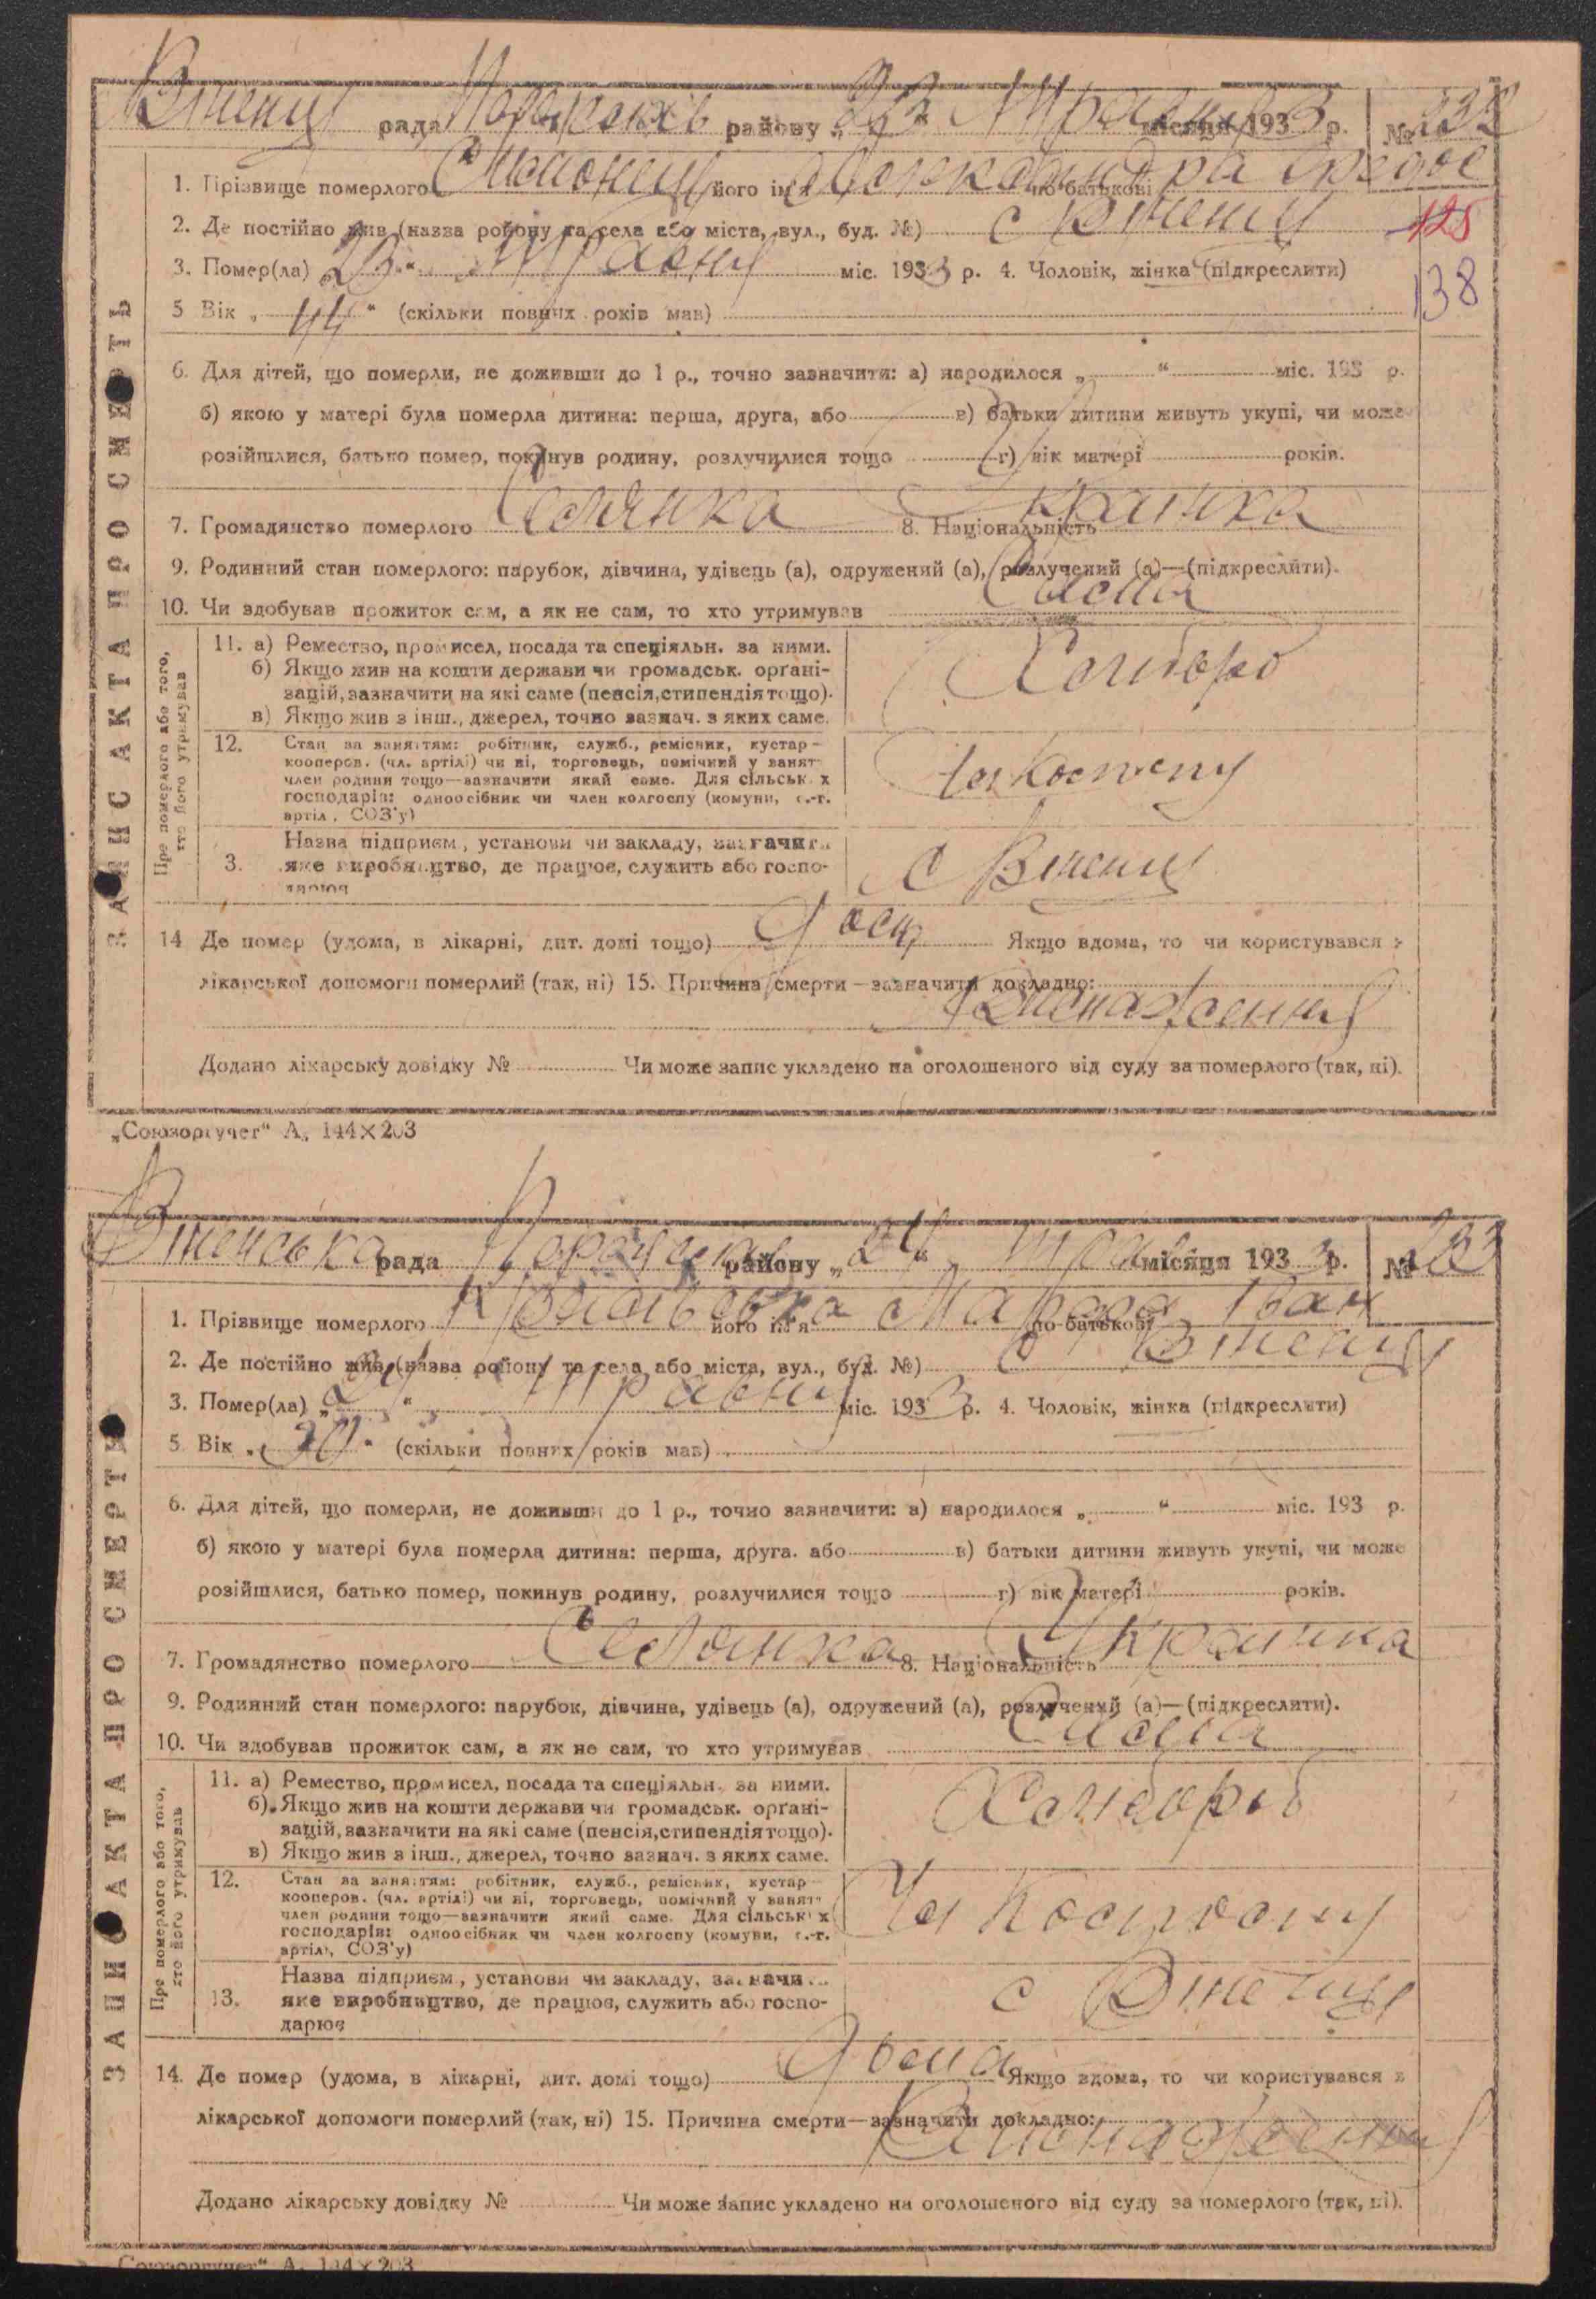 рада району „23“ місяця 1933 р. № 232
1. Прізвище померлого його ім'я Олександра по батькові
2. Де постійно жив (назва району та села або міста, вул., буд. №) с
125
3. Помер(ла) „23“ Травня міс. 1933 р. 4. Чоловік, жінка (підкреслити)
138
5 Вік „44“ (скільки повних років мав)
6. Для дітей, що померли, не доживши до 1 р., точно зазначити: а) народилося „ “ міс. 193 р.
б) якою у матері була померла дитина: перша, друга, або в) батьки дитини живуть укупі, чи може
розійшлися, батько помер, покинув родину, розлучилися тощо г) вік матері років.
7. Громадянство померлого Селянка 8. Національність Українка
9. Родинний стан померлого: парубок, дівчина, удівець (а), одружений (а), розлучений (а)—(підкреслити).
10. Чи здобував прожиток сам, а як не сам, то хто утримував Сама
ЗАПИС АКТА ПРО СМЕРТЬ
Про померлого або того,
хто його утримував
11. а) Ремество, промисел, посада та спеціяльн. за ними.
б) Якщо жив на кошти держави чи громадськ. органі-
зацій, зазначити на які саме (пенсія, стипендія тощо).
в) Якщо жив з інш., джерел, точно зазнач. з яких саме.
Хлібороб
12. Стан за заняттям: робітник, служб., ремісник, кустар—
кооперов. (чл. артілі) чи ні, торговець, помічний у занят
член родини тощо—зазначити який саме. Для сільськ х
господарів: одноосібник чи член колгоспу (комуни, с.-г.
артіл , СОЗ'у)
3. Назва підприєм., установи чи закладу, зазначити
яке виробництво, де працює, служить або госпо-
дарює
с
14 Де помер (удома, в лікарні, дит. домі тощо) Дома Якщо вдома, то чи користувався з
лікарської допомоги померлий (так, ні) 15. Причина смерти—зазначити докладно:
Виснаження
Додано лікарську довідку № Чи може запис укладено на оголошеного від суду за померлого (так, ні).
„Союзоргучет“ А, 144×203
рада району „24“ місяця 1933 р. № 233
1. Прізвище померлого його ім'я по батькові Іван
2. Де постійно жив (назва району та села або міста, вул., буд. №) с
3. Помер(ла) „24“ Травня міс. 1933 р. 4. Чоловік, жінка (підкреслити)
5 Вік „ “ (скільки повних років мав)
6. Для дітей, що померли, не доживши до 1 р., точно зазначити: а) народилося „ “ міс. 193 р.
б) якою у матері була померла дитина: перша, друга. або в) батьки дитини живуть укупі, чи може
розійшлися, батько помер, покинув родину, розлучилися тощо г) вік матері років.
7. Громадянство померлого Селянка 8. Національність Українка
9. Родинний стан померлого: парубок, дівчина, удівець (а), одружений (а), розлучений (а)—(підкреслити).
10. Чи здобував прожиток сам, а як не сам, то хто утримував Сама
ЗАПИС АКТА ПРО СМЕРТЬ
Про померлого або того,
хто його утримував
11. а) Ремество, промисел, посада та спеціяльн. за ними.
б) Якщо жив на кошти держави чи громадськ. органі-
зацій, зазначити на які саме (пенсія, стипендія тощо).
в) Якщо жив з інш., джерел, точно зазнач. з яких саме.
Хлібороб
12. Стан за заняттям: робітник, служб., ремісник, кустар—
кооперов. (чл. артілі) чи ні, торговець, помічний у занят
член родини тощо—зазначити який саме. Для сільських
господарів: одноосібник чи член колгоспу (комуни, с.-г.
артілі, СОЗ'у)
13. Назва підприєм., установи чи закладу, зазначити
яке виробництво, де працює, служить або госпо-
дарює
с
14. Де помер (удома, в лікарні, дит. домі тощо) Дома Якщо вдома, то чи користувався з
лікарської допомоги померлий (так, ні) 15. Причина смерти—зазначити докладно:
Виснаження
Додано лікарську довідку № Чи може запис укладено на оголошеного від суду за померлого (так, ні).
„Союзоргучет“ А, 144×203